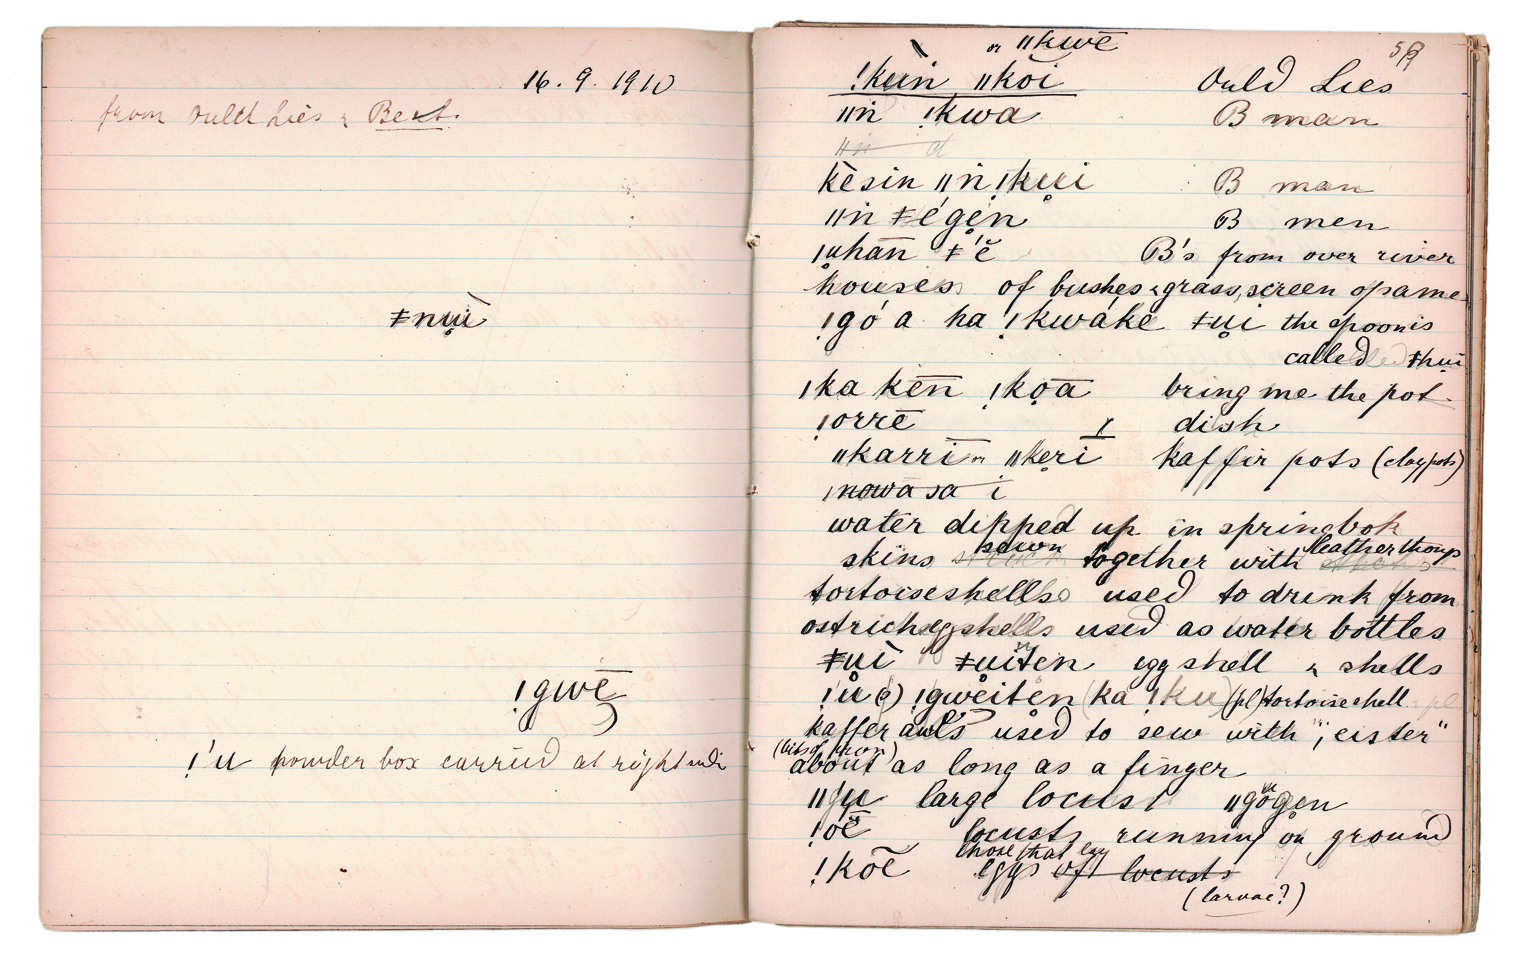 16. 9. 1910
from Ould Lies & Bent.
ǂnu̥ì
!gwē
!'u powder box carried at right side
59
or ǁkwē
!ku̥in ǁkòī Ould Lies
ǁṅ !kwa B man
kèsin ǁṅ !ku̥i B man
ǁṅ ǂégen B men
ǀu̥hān ǂ'ĕ B's from over river
houses of bushes & grass, screen o same
!gó a ha !kwákĕ ǂu̥i the spoon is
called ǂhu̥i
ǀka kēn !kọā bring me the pot.
!orrē dish
ǁkarrī or ǁkẹri kaffir pots (clay pots)
ǀnowa sa i
water dipped up in springbok
skins sewn together with leather thongs
tortoiseshells used to drink from
ostrich eggshells used as water bottles
ǂu̥ì ǂu̥iten egg shell & shells
!'u̥ !gweiten (ka !ku) (pl) tortoiseshell
kaffer awls used to sew with ", eister"
(bits of iron)
about as long as a finger
large locust ǁgogen
!oē locusts running on ground
!kōē those that lay
eggs of locusts
(larvae?)